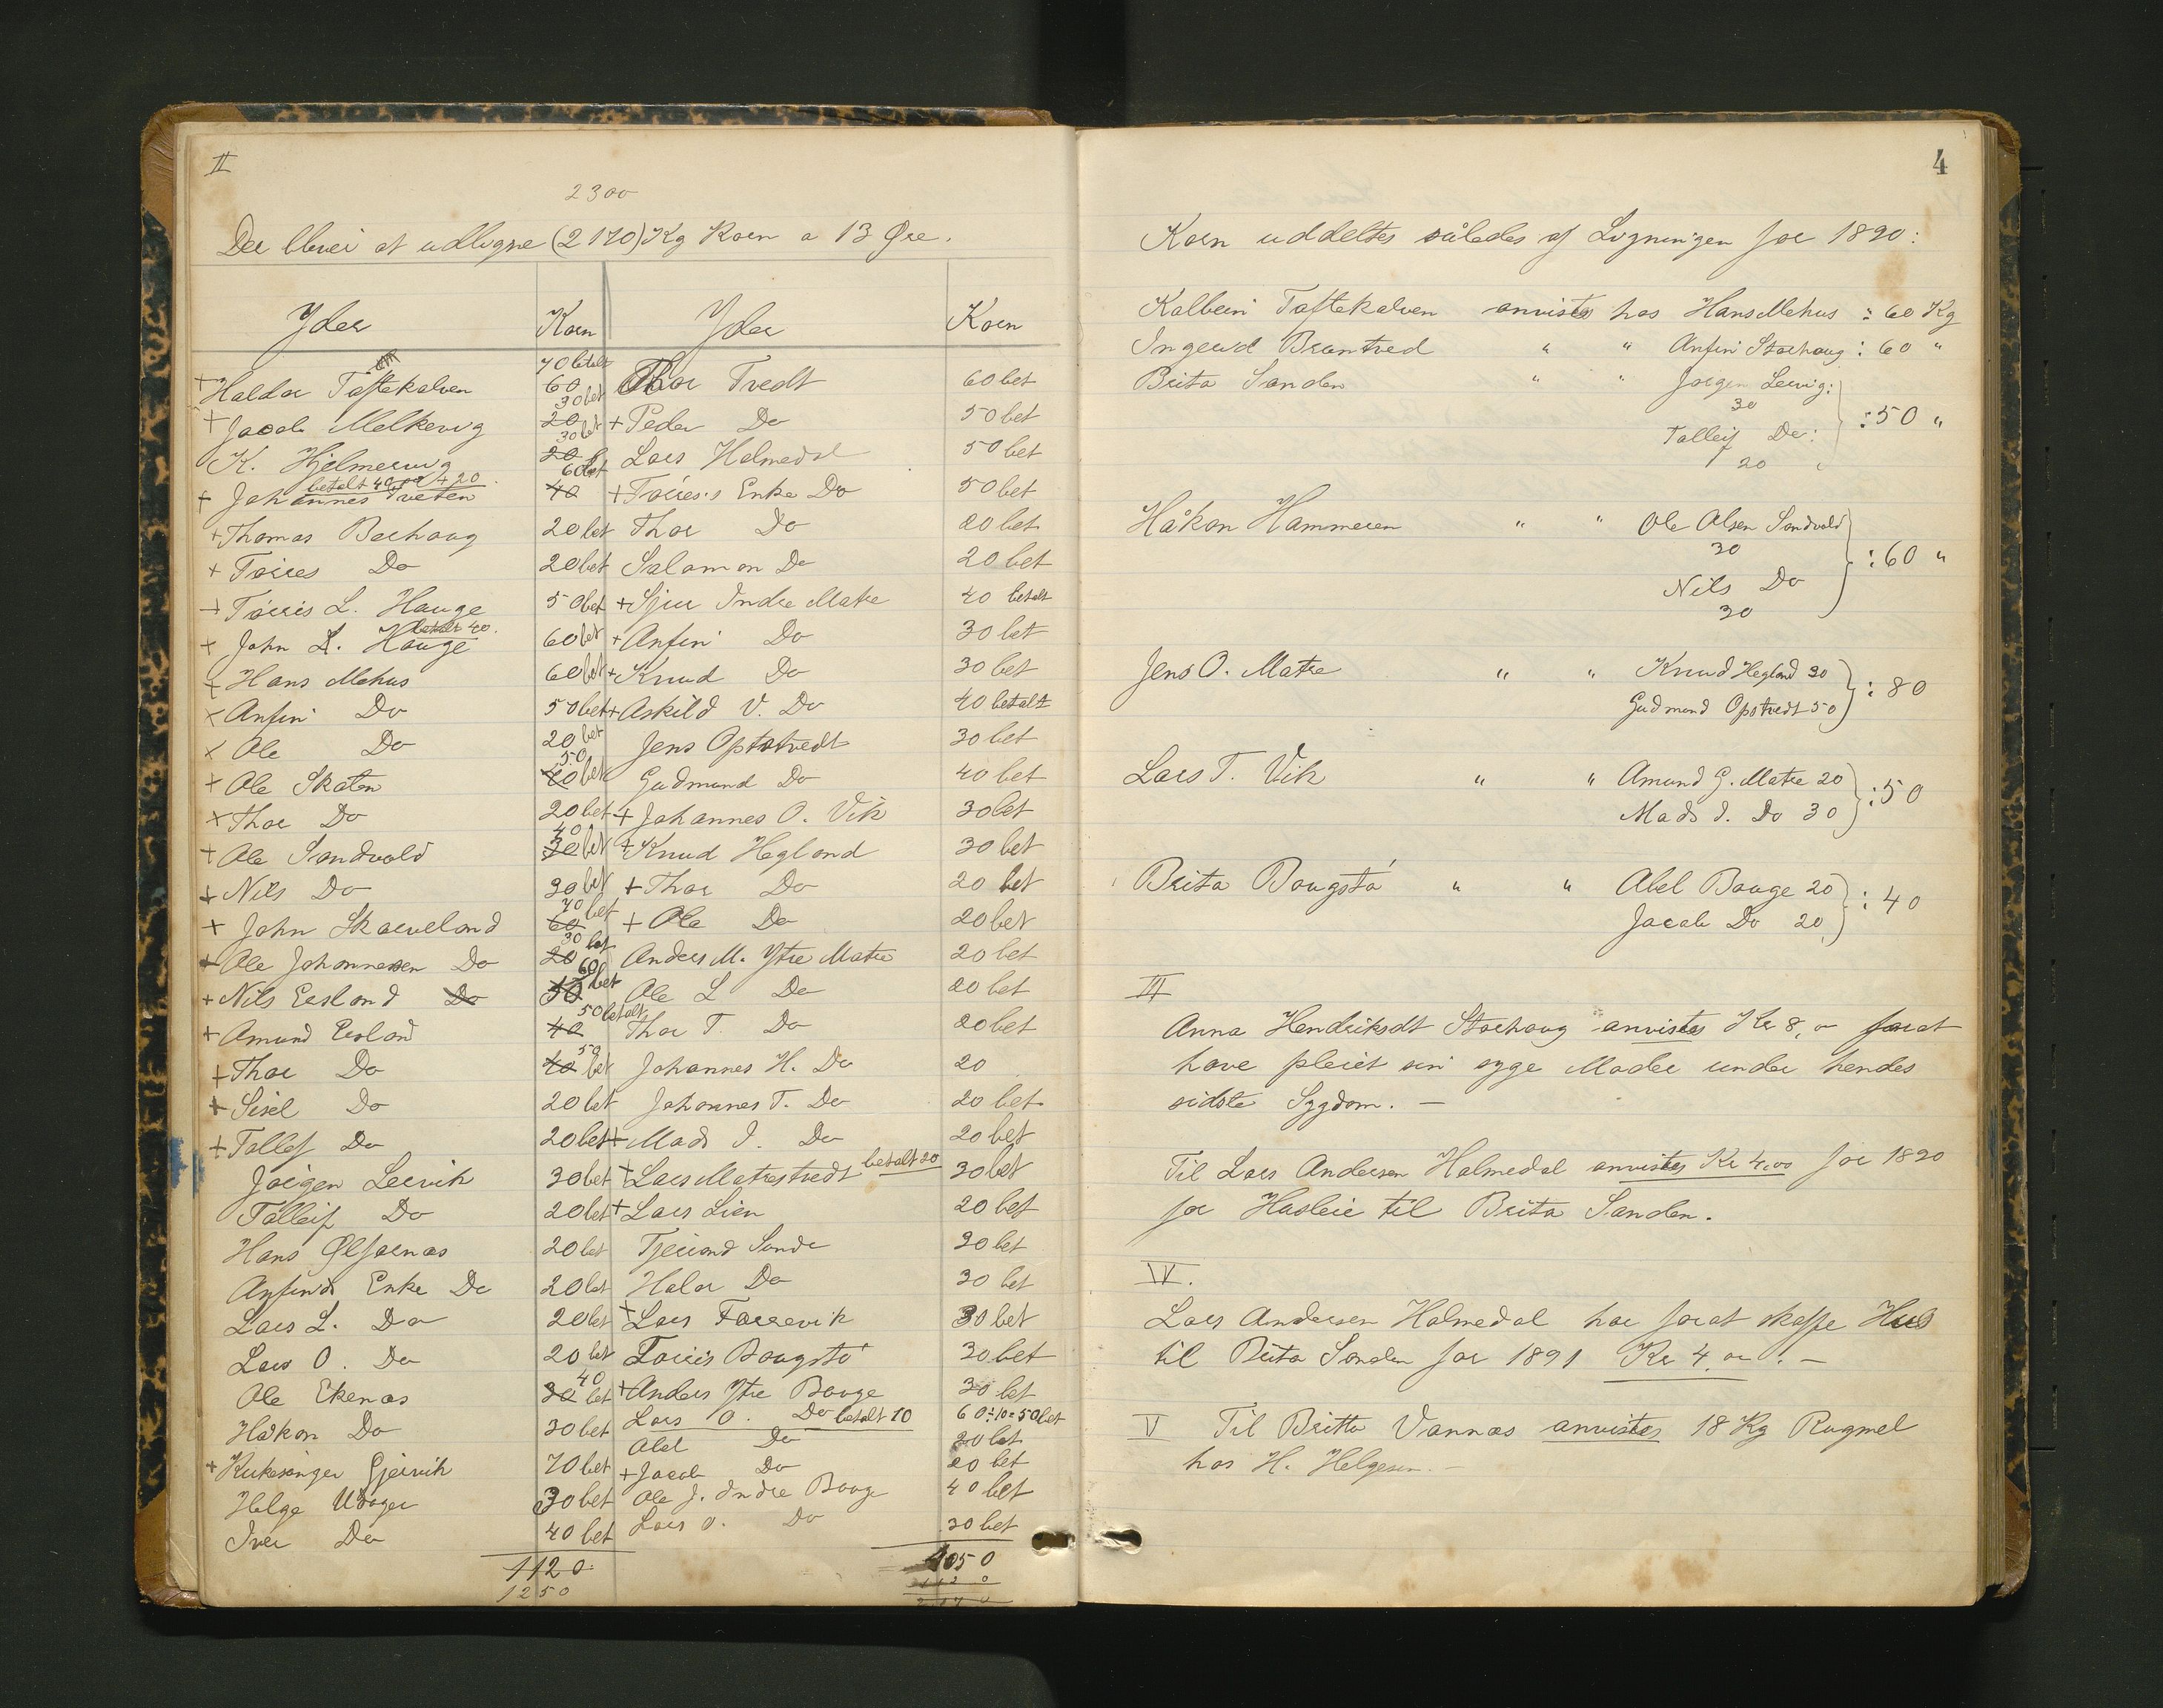 II
2300
Der blver at udligne (2170) Kg Korn a 13 Øre.
Yder Korn Yder Korn
+ Haldor Toftekalven 70 betalt 60 Thor Tvedt 60 bet
+ Jacob Melkevig 30 bet 20 + Peder Do 50 bet
K. Hjelmervig 30 bet 20 Lars Holmedal 50 bet
betalt 40,00 + 20
+ Johannes Tveten 60 bet 40 + Tørres's Enke Do 50 bet
+ Thomas Berhoug 20 bet Thor Do 20 bet
+ Tørres Do 20 bet Salamon Do 20 bet
+ Tørris L. Hauge 50 bet + Sjur Indre Matre 40 betalt
betalt 40.
+ John L. Hauge 60 bet + Anfin Do 30 bet
+ Hans Mehus 60 bet + Knud Do 30 bet
+ Anfin Do 50 bet + Askild V. Do 40 betalt
+ Ole Do 20 bet Jens Opstvedt 30 bet
+ Ole Skaten 50 40 bet Gudmund Do 40 bet
+ Thor Do 20 bet + Johannes O. Vik 30 bet
+ Ole Sandvold 40 30 bet + Knud Hegland 30 bet
+ Nils Do 30 bet + Thor Do 20 bet
+ John Skarveland 70 bet 60 + Ole Do 20 bet
+ Ole Johannesen Do 30 bet 20 Anders M. Ytre Matre 20 bet
+ Nils Eesland Do 60 bet 50 Ole L Do 20 bet
+ Amund Eesland 50 betalt 40 Thor T. Do 20 bet
+ Thor Do 50 40 bet Johannes H. Do 20
+ Sisel Do 20 bet Johannes T. Do 20 bet
+ Tollef Do 20 bet + Mads I. Do 20 bet
Jørgen Leervik 30 bet + Lars Matrestvedt betalt 20 30 bet
Tolleif Do 20 bet + Lars Lien 20 bet
Hans Ølfarnæs 20 bet Tjerand Sunde 30 bet
Anfinds Enke Do 20 bet Halor Do 30 bet
Lars L. Do 20 bet + Lars Tørrevik 30 bet
Lars O. Do 20 bet Tørris Bougstø 30 bet
Ole Ekenæs 40 30 bet + Anders Ytre Bouge 30 bet
Håkon Do 30 bet Lars O. Do betalt 10 60÷10=50 bet
Abel Do 20 bet
+ Kirkesanger Gjervik 70 bet + Jacob Do 20 bet
Helge Uvager 30 bet Ole J. Indre Bouge 40 bet
Iver Do 40 bet Lars O. Do 30 bet
1120 1050
1250 1120
2170
4
Korn uddeltes således af Ligningen for 1890:
Kolbein Toftekalven anvistes hos Hans Mehus : 60 Kg
Ingerd Brentved " " Anfin Storhoug : 60 "
Brita Sanden " " Jørgen Lervig:
30
Tolleif Do: : 50 "
20
Håkon Hammeren " " Ole Olsen Sandvold
30
: 60 "
Nils Do
30
Jens O. Matre " " Knud Hegland 30
Gudmund Opstvedt 50 : 80
Lars T. Vik " " Amund G. Matre 20
Mads I. Do 30 : 50
Brita Bougstø " " Abel Bouge 20
Jacob Do 20 : 40
III
Anna Hendriksdt Storhoug anvistes Kr 8,00 for at
have pleiet sin syge Moder under hendes
sidste Sygdom. —
Til Lars Andersen Holmedal anvistes Kr 4,00 for 1890
for Husleie til Brita Sanden.
IV.
Lars Andersen Holmedal har for at skaffe Hus
til Brita Sanden for 1891 Kr 4,00. —
V Til Britta Vannæs anvistes 18 Kg Rugmel
hos H. Helgesen. —